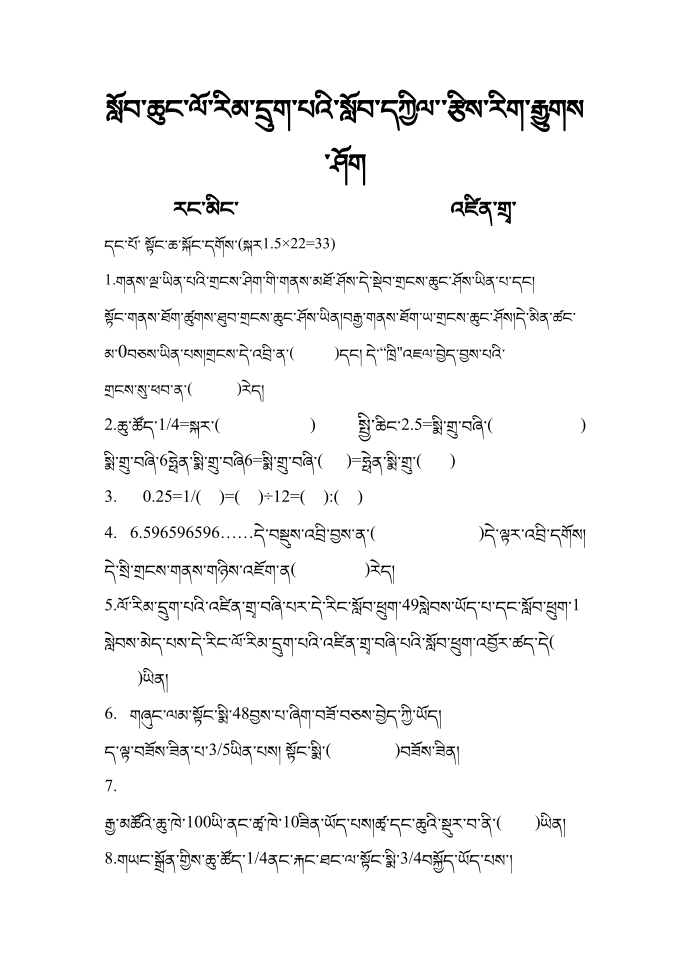 སློབ་ཆུང་ལོ་རིམ་དྲུག་པའི་སློབ་དཀྱིལ་་རྩིས་རིག་རྒྱུགས
་ཤོག
རང་མིང་ འཛིན་གྲྭ་
དང་པོ་ སྟོང་ཆ་སྐོང་དགོས་(སྐར1.5×22=33)
1.གནས་ལྔ་ཡིན་པའི་གྲངས་ཤིག་གི་གནས་མཐོ་ཤོས་དེ་སྡེབ་གྲངས་ཆུང་ཤོས་ཡིན་པ་དང།
སྟོང་གནས་ཐོག་ཚུགས་ཐུབ་གྲངས་ཆུང་ཤོས་ཡིན།བརྒྱ་གནས་ཐོག་ཡ་གྲངས་ཆུང་ཤོས།དེ་མིན་ཚང་
མ་0བཅས་ཡིན་པས།གྲངས་དེ་འབྲི་ན་( )དང། དེ་“ཁྲི"འཇལ་བྱེད་བྱས་པའི་
གྲངས་སུ་ཕབ་ན་( )རེད།
2.ཆུ་ཚོད་1/4=སྐར་( ) སྤྱི་ཆིང་2.5=སྨི་གྲུ་བཞི་( )
སྨི་གྲུ་བཞི་6ཧྥེན་སྨི་གྲུ་བཞི6=སྨི་གྲུ་བཞི་( )=ཧྥེན་སྨི་གྲུ་( )
3. 0.25=1/( )=( )÷12=( ):( )
4. 6.596596596……དེ་བསྡུས་འབྲི་བྱས་ན་( )དེ་ལྟར་འབྲི་དགོས།
དེ་སྲི་གྲངས་གནས་གཉིས་འཇོག་ན( )རེད།
5.ལོ་རིམ་དྲུག་པའི་འཛིན་གྲྭ་བཞི་པར་དེ་རིང་སློབ་ཕྲུག་49སླེབས་ཡོད་པ་དང་སློབ་ཕྲུག་1
སླེབས་མེད་པས་དེ་རིང་ལོ་རིམ་དྲུག་པའི་འཛིན་གྲྭ་བཞི་པའི་སློབ་ཕྲུག་འབྱོར་ཚད་དེ(
)ཡིན།
6. གཞུང་ལམ་སྟོང་སྨི་48བྱས་པ་ཞིག་བཟོ་བཅས་བྱེད་ཀྱི་ཡོད།
ད་ལྟ་བཟོས་ཟིན་པ་3/5ཡིན་པས། སྟོང་སྨི་( )བཟོས་ཟིན།
7.
རྒྱ་མཚོའི་ཆུ་ཁེ་100ཡི་ནང་ཚྭ་ཁེ་10ཟིན་ཡོད་པས།ཚྭ་དང་ཆུའི་སྡུར་བ་ནི་( )ཡིན།
8.གཡང་སྒྲོན་གྱིས་ཆུ་ཚོད་1/4ནང་རྐང་ཐང་ལ་སྟོང་སྨི་3/4བསྐྱོད་ཡོད་པས་།